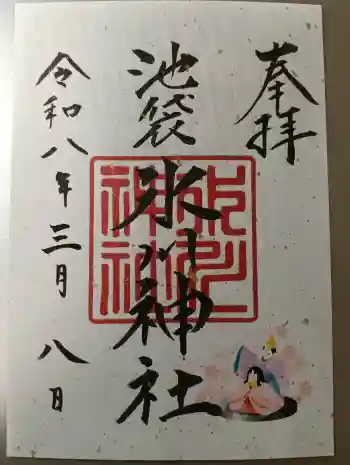 奉拝
池袋氷川神社
令和八年三月八日
氷川神社